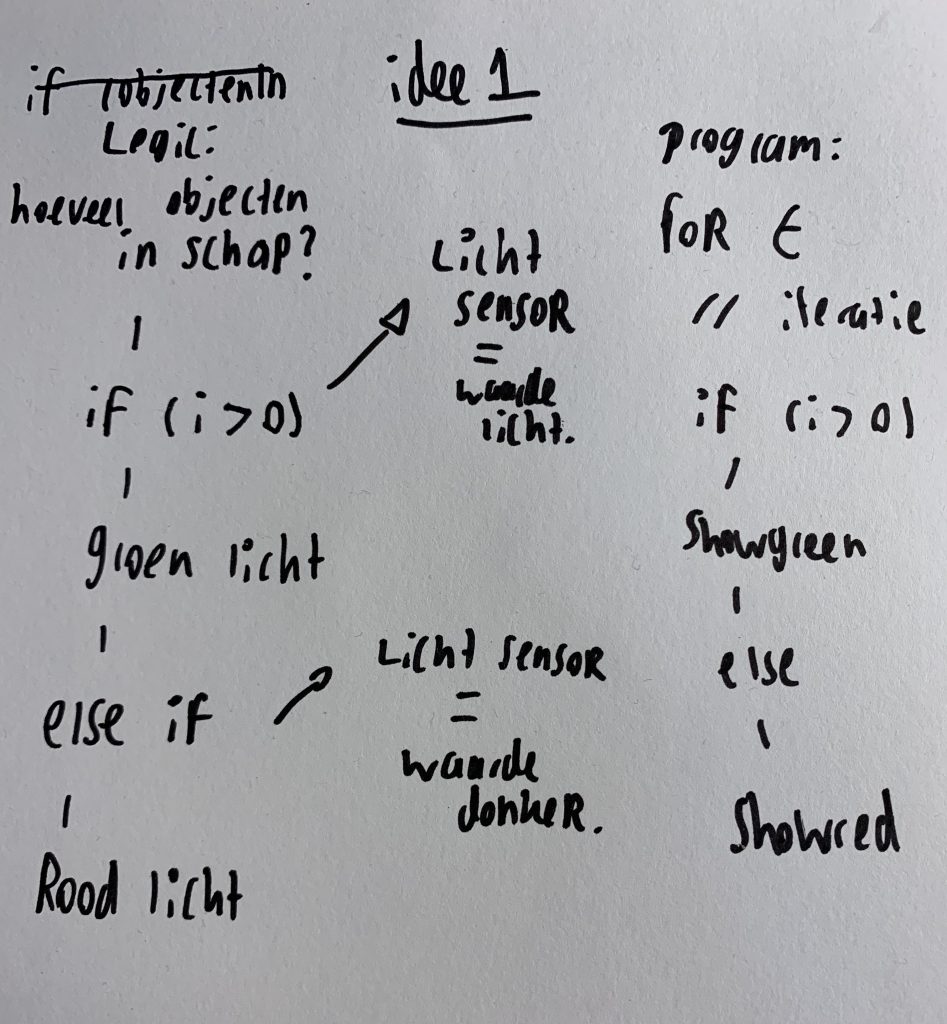 idee 1
if (objectenin
Logic:
hoeveel objecten
in schap?
|
if (i>0)
|
groen licht
|
else if
|
Rood licht
Licht
sensor
=
waarde
licht.
Licht sensor
=
waarde
donker.
program:
for {
// iteratie
if (i>0)
|
Showgreen
|
else
|
Showred